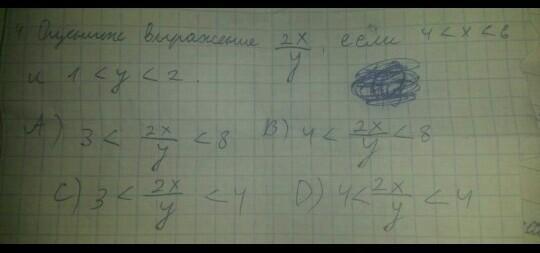 4. Оцените выражение 2x/y, если 4 < x < 6
и 1 < y < 2.
A) 3 < 2x/y < 8 B) 4 < 2x/y < 8
C) 3 < 2x/y < 4 D) 4 < 2x/y < 4